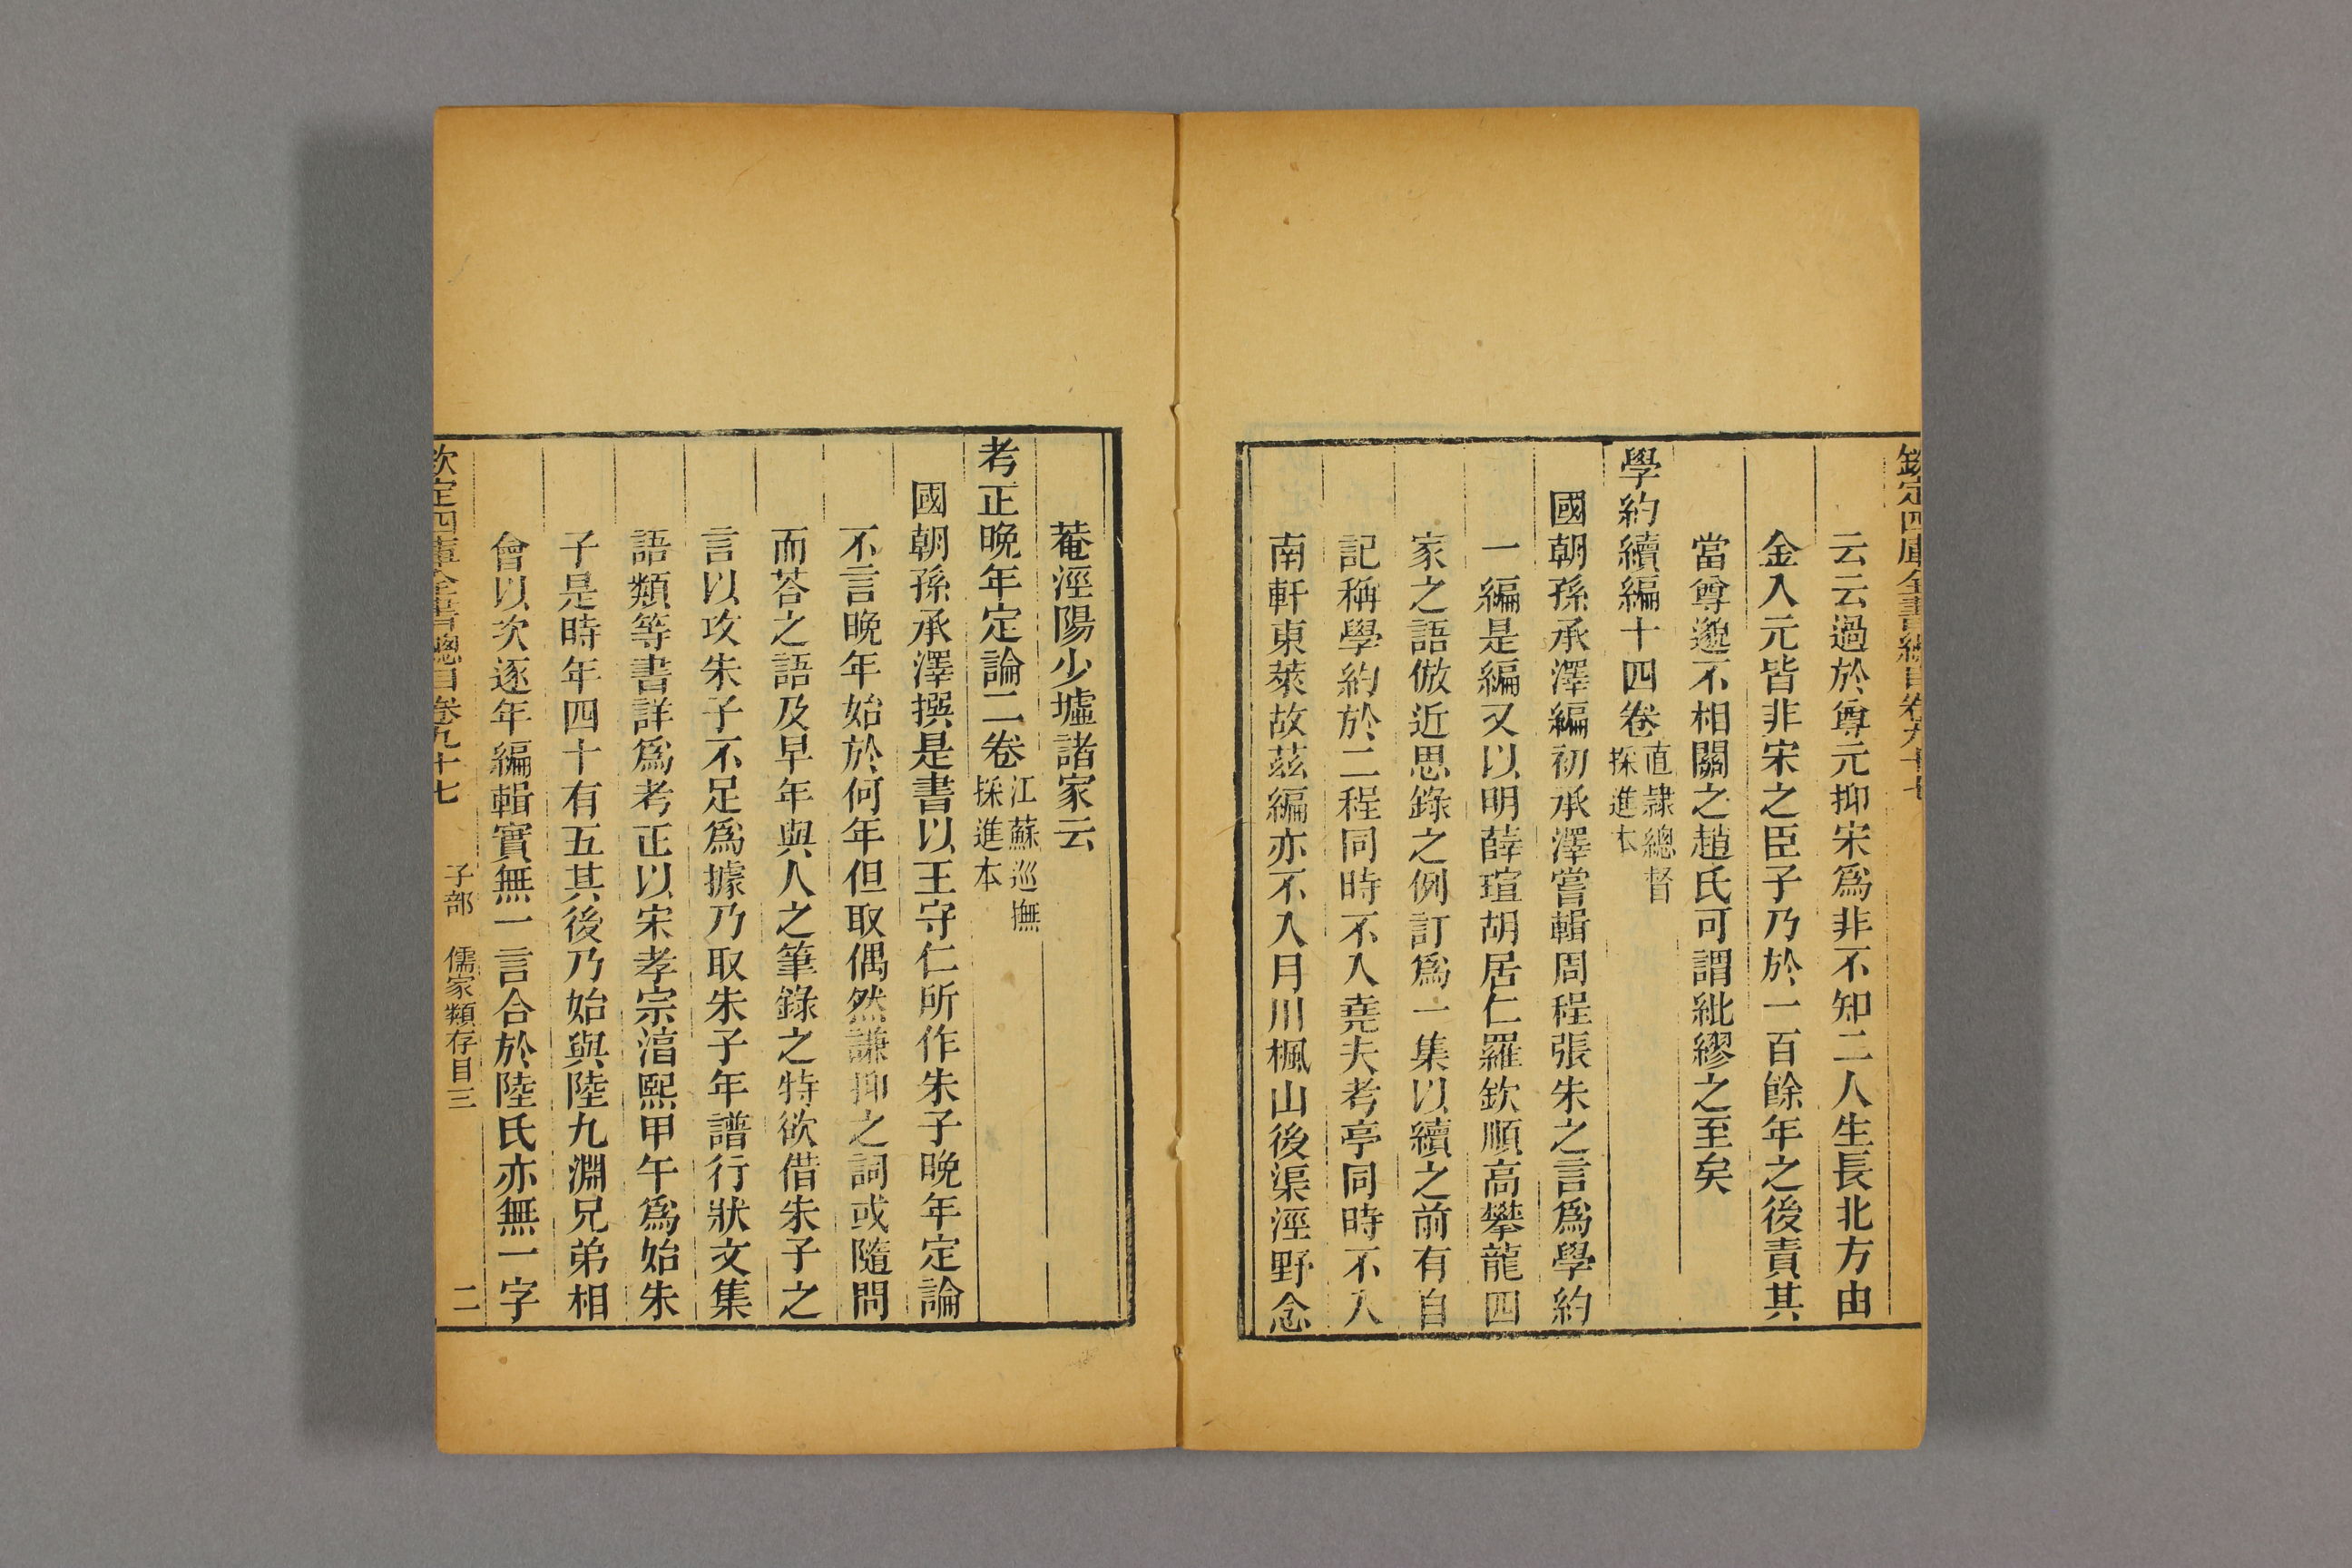 欽定四庫全書總目卷九十七
云云過於尊元抑宋爲非不知二人生長北方由
金入元皆非宋之臣子乃於一百餘年之後責其
當尊邈不相關之趙氏可謂紕繆之至矣
學約續編十四卷
直隸總督
採進本
國朝孫承澤編初承澤嘗輯周程張朱之言爲學約
一編是編又以明薛瑄胡居仁羅欽順高攀龍四
家之語倣近思錄之例訂爲一集以續之前有自
記稱學約於二程同時不入堯夫考亭同時不入
南軒東萊故茲編亦不入月川楓山後渠涇野念
菴涇陽少墟諸家云
考正晚年定論二卷
江蘇巡撫
採進本
國朝孫承澤撰是書以王守仁所作朱子晚年定論
不言晚年始於何年但取偶然謙抑之詞或隨問
而荅之語及早年與人之筆錄之特欲借朱子之
言以攻朱子不足爲據乃取朱子年譜行狀文集
語類等書詳爲考正以宋孝宗湻熙甲午爲始朱
子是時年四十有五其後乃始與陸九淵兄弟相
會以次逐年編輯實無一言合於陸氏亦無一字
欽定四庫全書總目卷九十七
子部
儒家類存目三
二